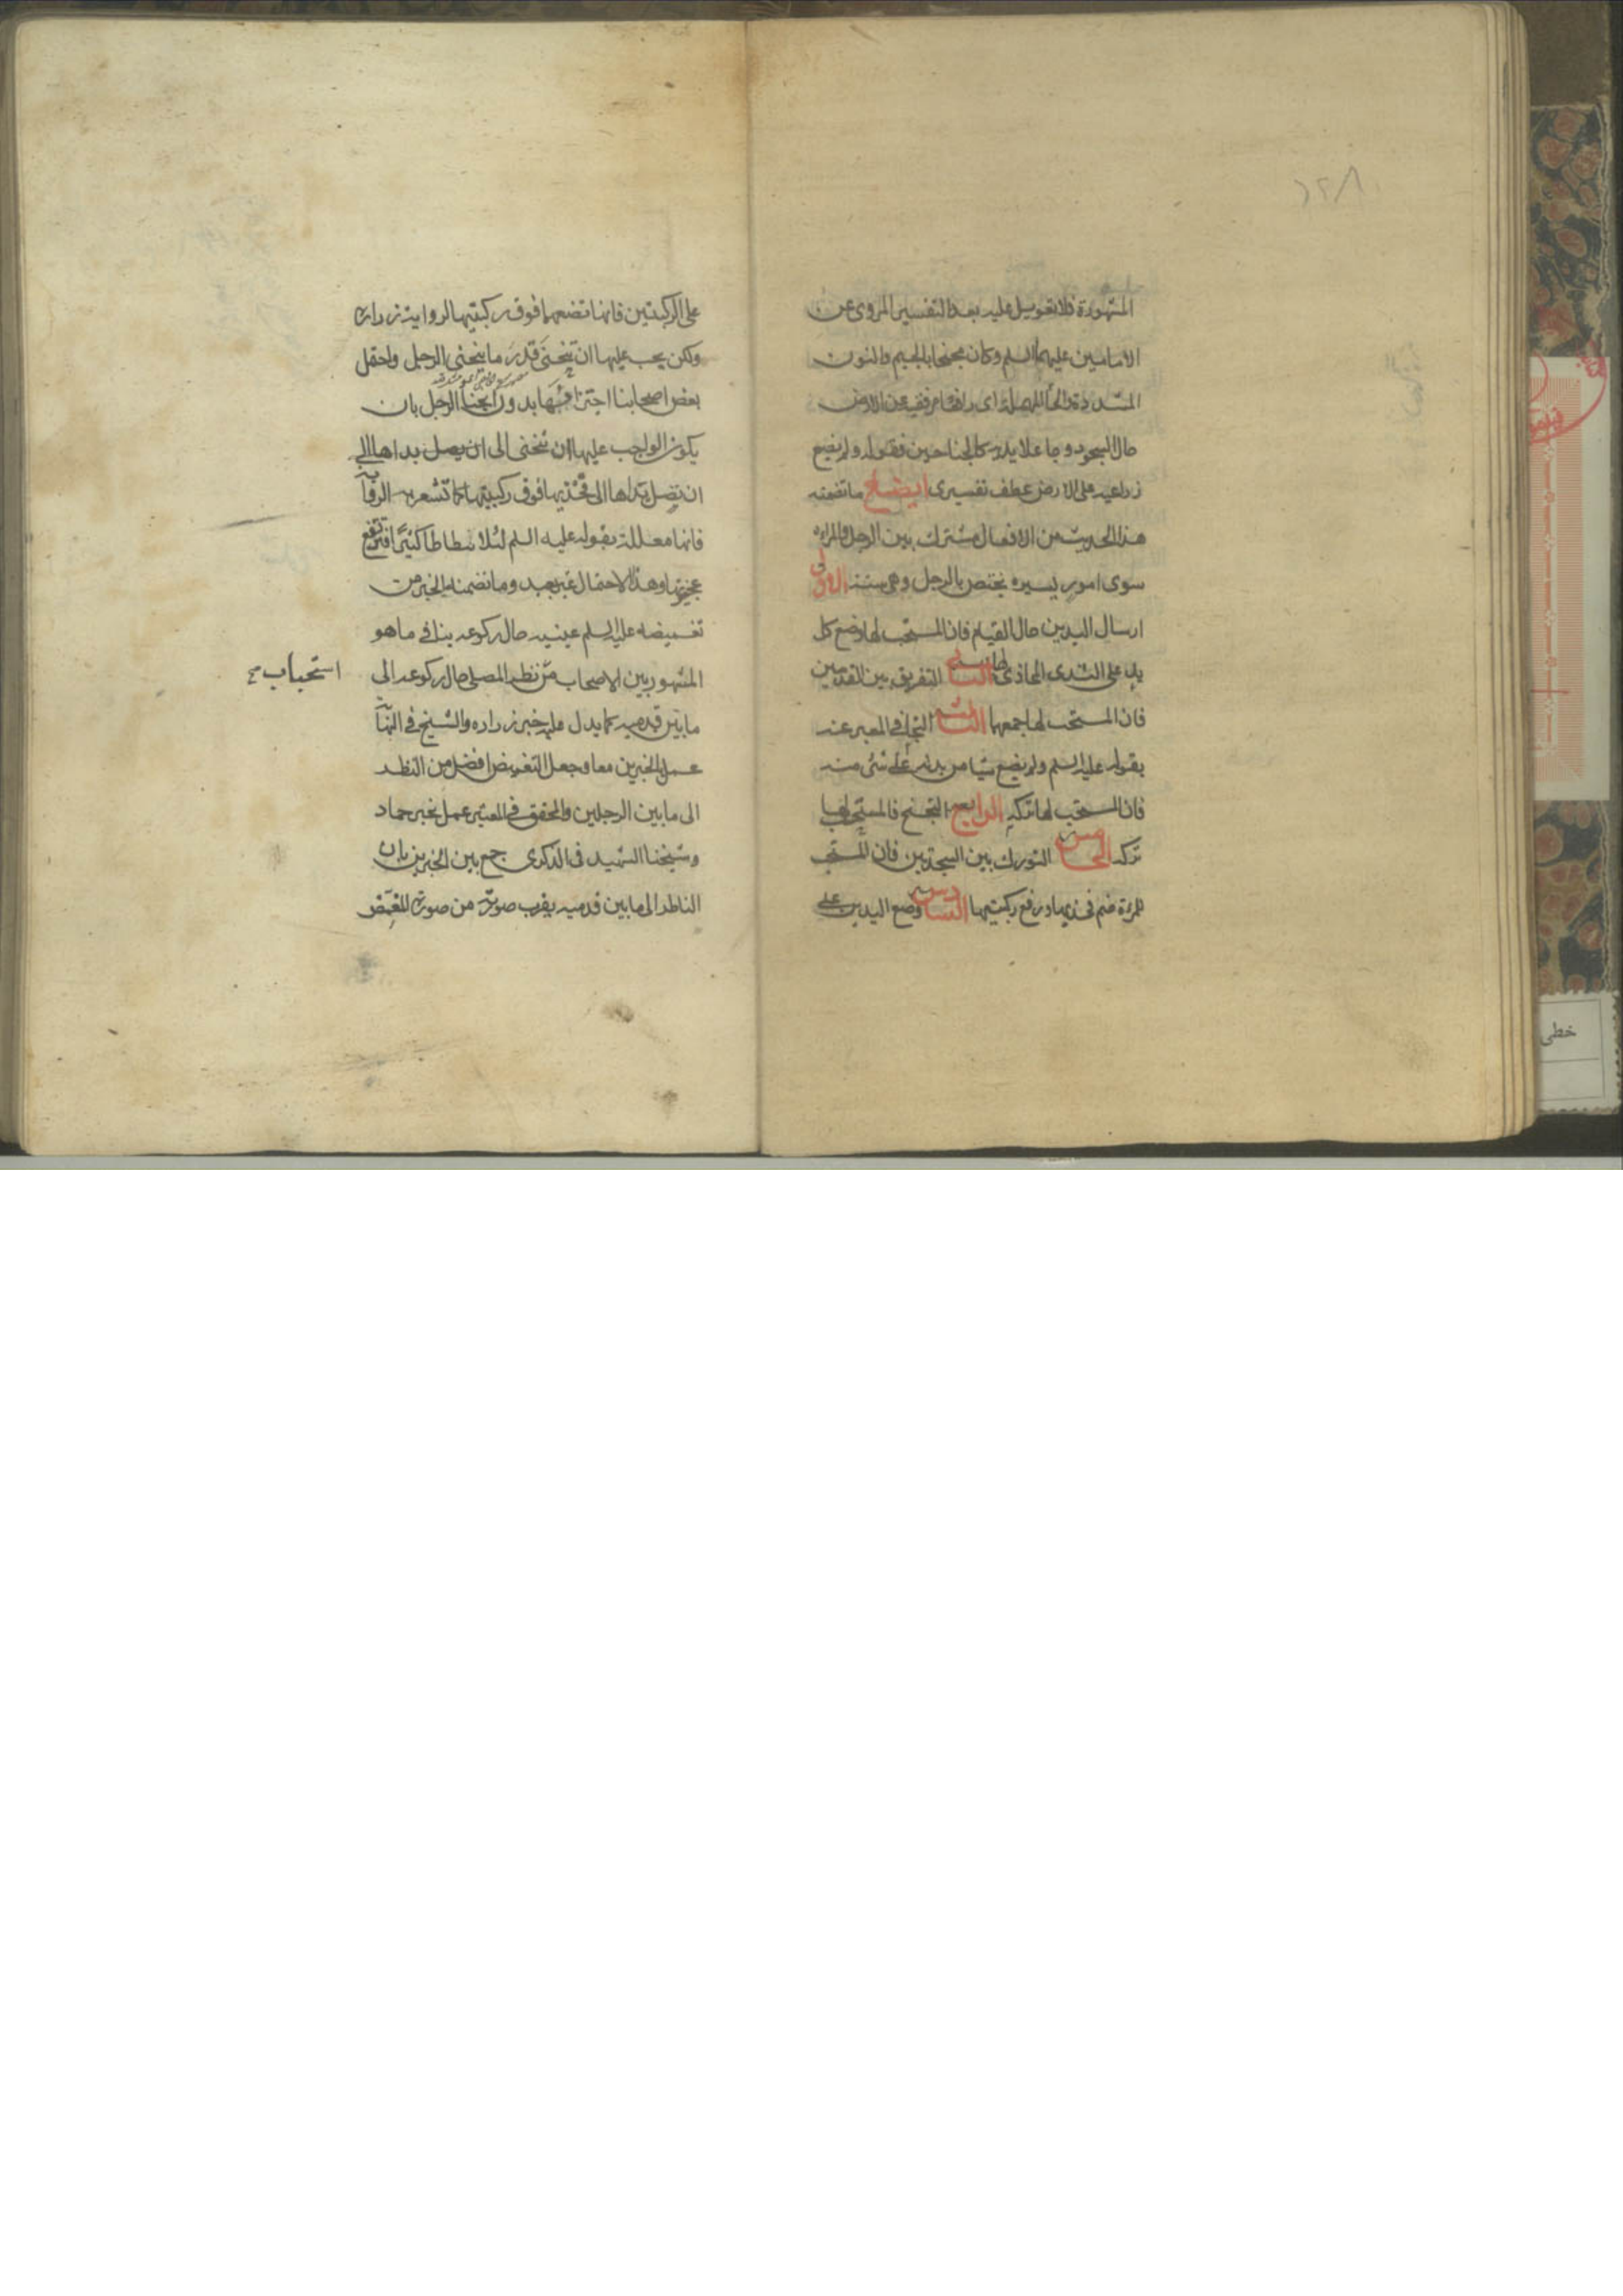 المشهورة فلا تعويل عليه بعد التفسير المروى عن
الامامين عليهما السلم وكان مجنحا بالجيم والنون
المشددة والحاء المهملة اى رافعا مرفقيه عن الارض
حال السجود جاعلا يديه كالجناحين فقوله ولم يضع
ذراعيه على الارض عطف تفسيرى ايضاح ما تضمنه
هذا الحديث من الافعال مشترك بين الرجل والمراه
سوى امور يسيره يختص بالرجل وهى ستة الاول
ارسال اليدين حال القيام فان المستحب لها وضع كل
يد على الثدى المحاذى لها الثانى التفريق بين القدمين
فان المستحب لها جمعهما الثالث التجافى المعبر عنه
بقوله عليه السلم ولم يضع شيا من بدنه على شئ منه
فان المستحب لها تركه الرابع التجنح فالمستحب لها
تركه الخامس التورك بين السجدتين فان المستحب
للمرءة ضم فخذيها ورفع ركبتيها السادس وضع اليدين على
على الركبتين فانها تضعهما فوق ركبتيها لرواية زراره
ولكن يجب عليها ان تنحنى قدر ما ينحنى الرجل واحتمل
بعض اصحابنا اجتزاءها بدون انحناء الرجل بان
يكون الواجب عليها ان تنحنى الى ان يصل يداها الى
ان تصل يداها الى فخذيها فوق ركبتيها كما تشعر به الرواية
فانها معللة بقوله عليه السلم لئلا تطاطا كثيرا فترتفع
عجيزتها وهذا الاحتمال غير بعيد وما تضمنه الخبر من
تغميضه عليه السلم عينيه حال ركوعه ينافى ما هو
المشهور بين الاصحاب من نظر المصلى حال ركوعه الى
استحباب
ما بين قدميه كما يدل عليه خبر زراره والشيخ فى النهاية
عمل بالخبرين معا وجعل التغميض افضل من النظر
الى ما بين الرجلين والمحقق فى المعتبر عمل بخبر حماد
وشيخنا الشهيد فى الذكرى جمع بين الخبرين بان
الناظر الى ما بين قدميه يقرب صورته من صورة المغمض
خطى